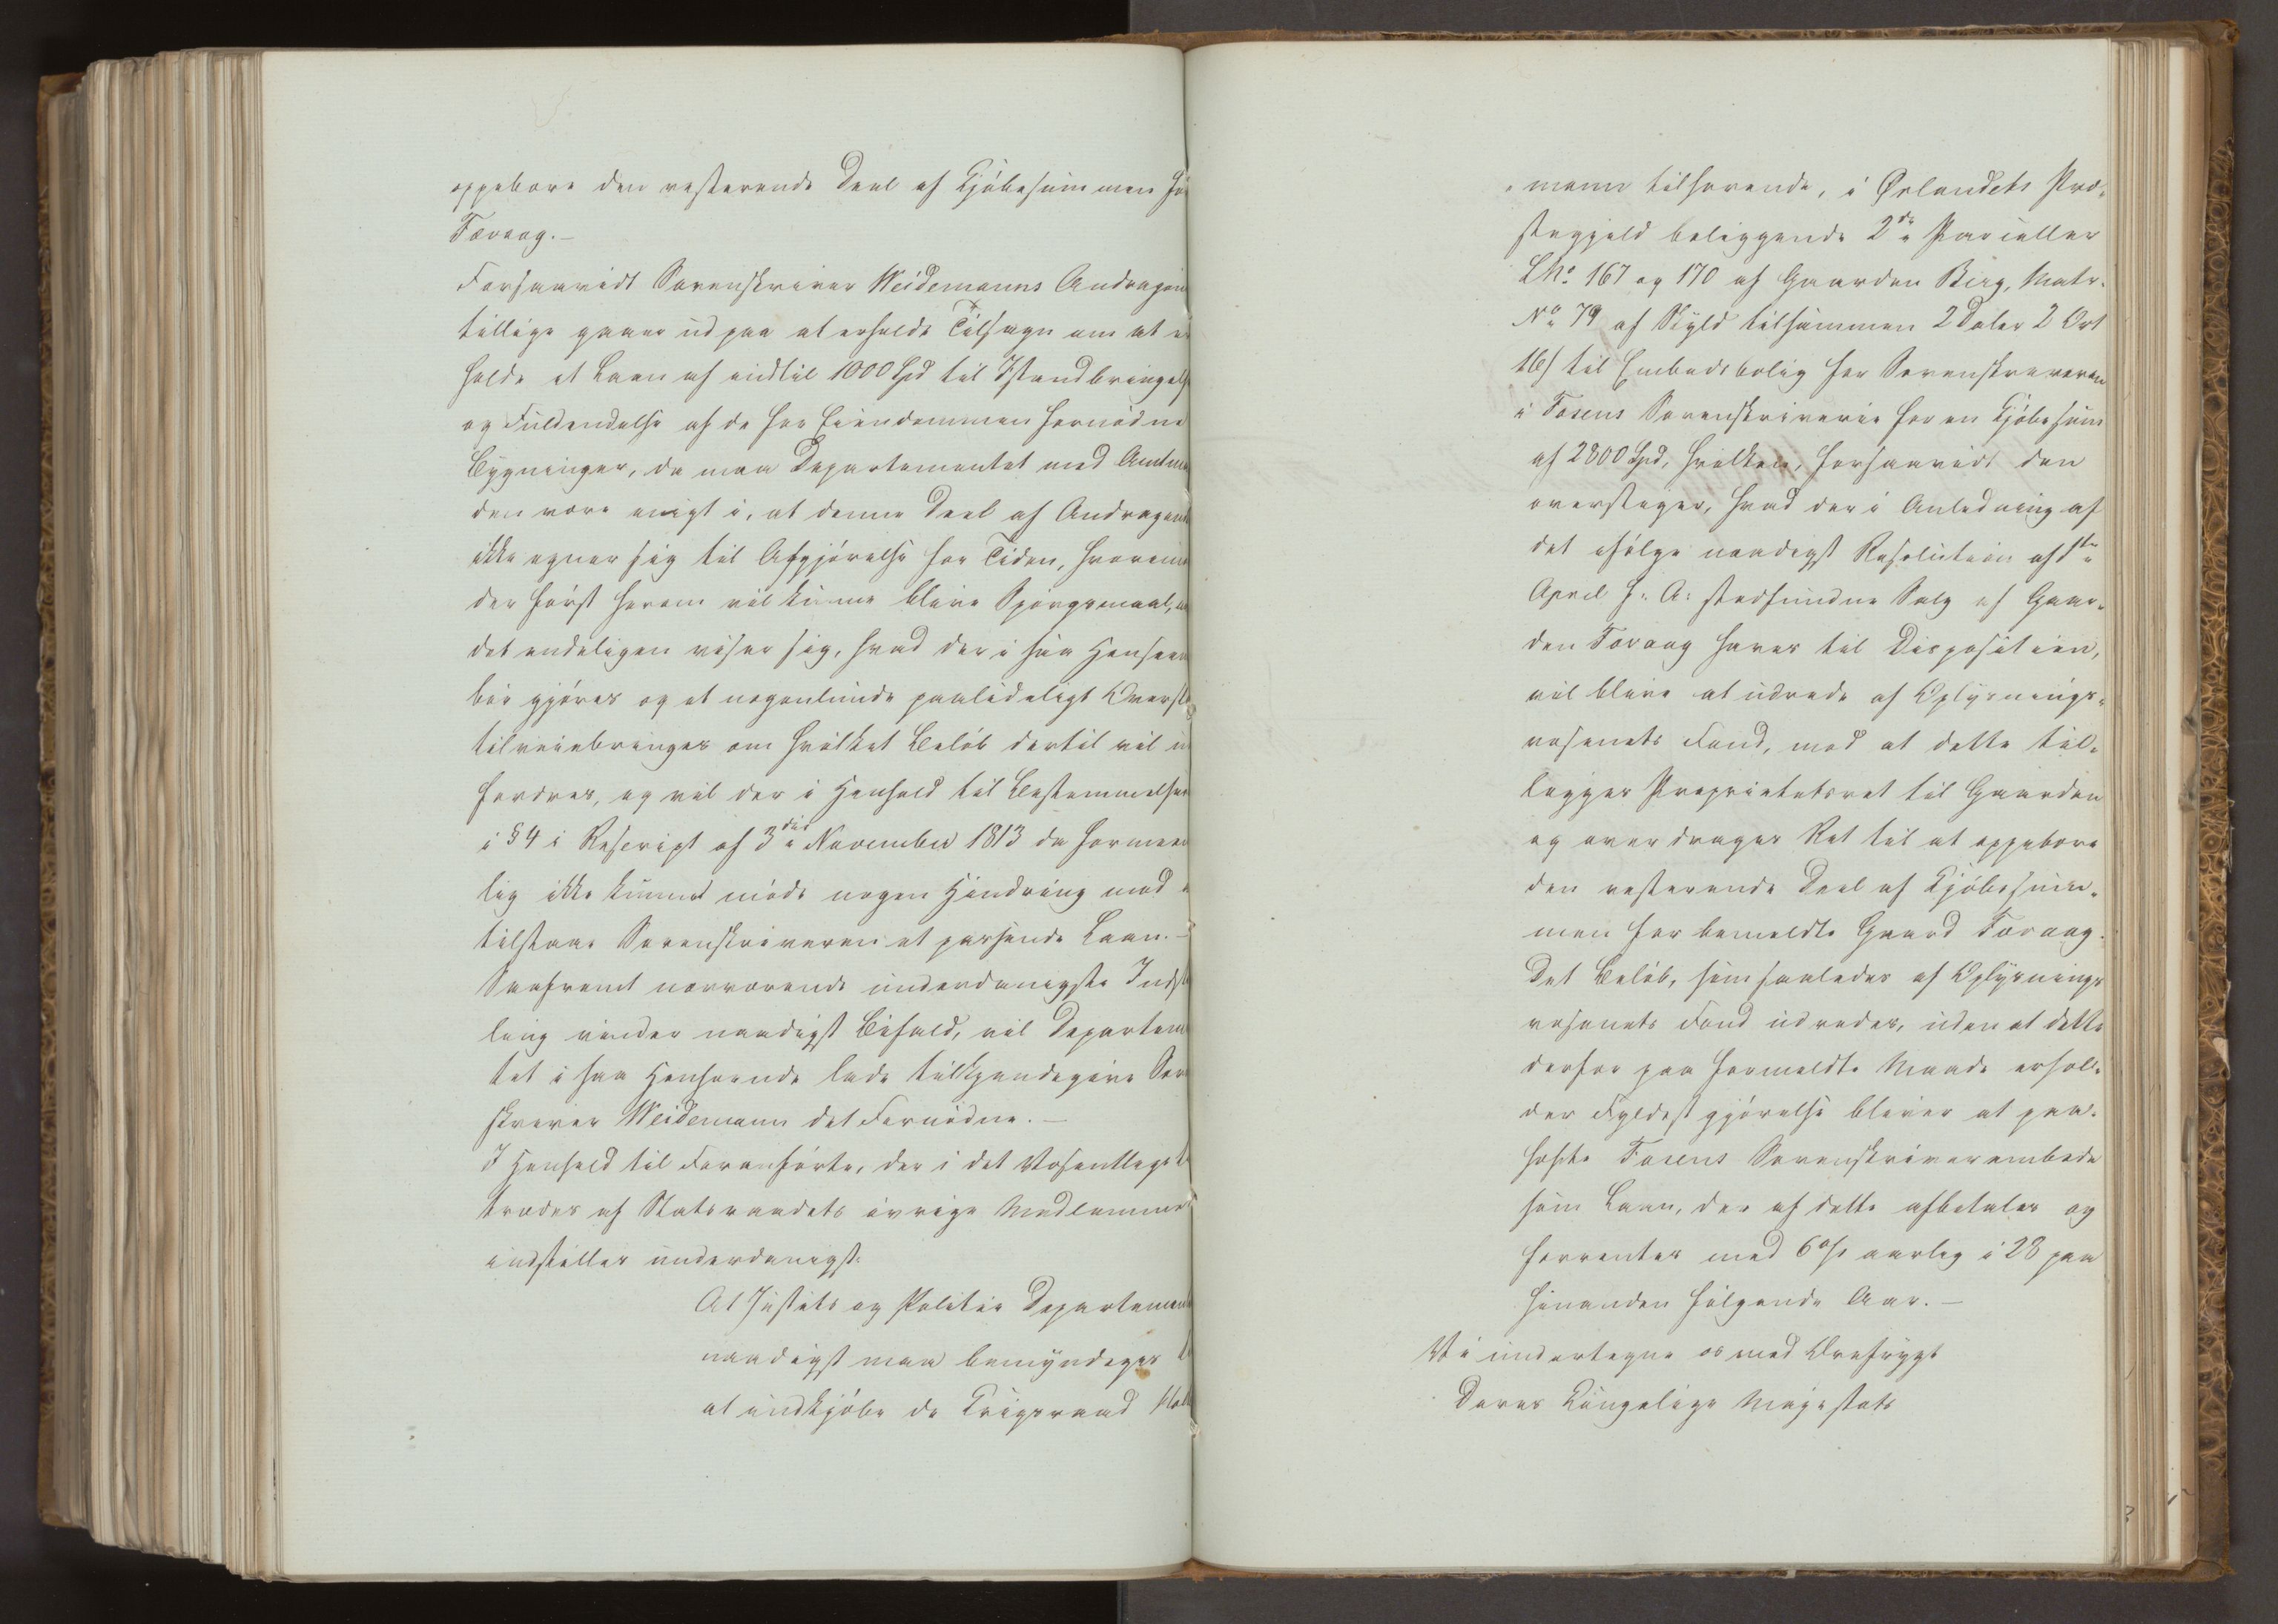 oppebære den resterende Deel af Kjöbesummen for
Toraag.—
Forsaavidt Sorenskriver Weidemanns Andragen
tillige gaaer ud paa at erholde Tilsagn om at er
holde et Laan af indtil 1000 Spd til Istandbringelse
og Fuldendelse af de for Eiendommen fornödne
Bygninger, da maa Departementet med Amtman
den være enigt i, at denne Deel af Andragende
ikke egner sig til Afgjörelse for Tiden, hvorimod
der först herom vil kunne blive Spörgsmaal, naar
det endeligen viser sig, hvad der i saa Henseende
bör gjöres og et nogenlunde paalideligt Overslag
tilveiebringes om hvilket Belöb dertil vil ud
fordres, og vil der i Henhold til Bestemmelsen
i § 4 i Rescript af 3die November 1813 da formeent
lig ikke kunne möde nogen Hindring mod at
tilstaae Sorenskriveren et passende Laan.—
Saafremt nærværende underdanigste Indstil
ling vinder naadigst Bifald, vil Departemen
tet i saa Henseende lade tilkjendegive Soren
skriver Weidemann det Fornödne.—
I Henhold til Foranförte, der i det Væsentlige til
trædes af Statsraadets övrige Medlemmer
indstilles underdanigst:
At Justits og Politie Departementet
naadigst maa bemyndiges til
at indkjöbe de Krigsraad
mann tilhörende, i Ørlandets Præ-
stegjeld beliggende 2de Parceller
LNo. 167 og 170 af Gaarden Berg, Matr.
No 79 af Skyld tilsammen 2 Daler 2 Ort
16 s til Embedsbolig for Sorenskriveren
i Fosens Sorenskriverie for en Kjöbesum
af 2800 Spd, hvilken, forsaavidt den
overstiger, hvad der i Anledning af
det ifölge naadigst Resolution af
April f: A: stedfundne Salg af Gaar-
den Toraag haves til Disposition,
vil blive at udrede af Oplysnings-
væsenets Fond, mod at dette til-
lægges Proprietetsret til Gaarden
og overdrages Ret til at oppebære
den resterende Deel af Kjöbesum-
men for bemeldte Gaard Toraag.
Det Belöb, som saaledes af Oplysnings
væsenets Fond udredes, uden at dette
derfor paa formeldte Maade erhol-
der Fyldestgjörelse bliver at paa-
hefte Fosens Sorenskriverembede
som Laan, der af dette afbetales og
forrentes med 6 o/o aarlig i 28 paa
hinanden fölgende Aar.—
Vi undertegne os med Ærefrygt
Deres Kongelige Majestæts